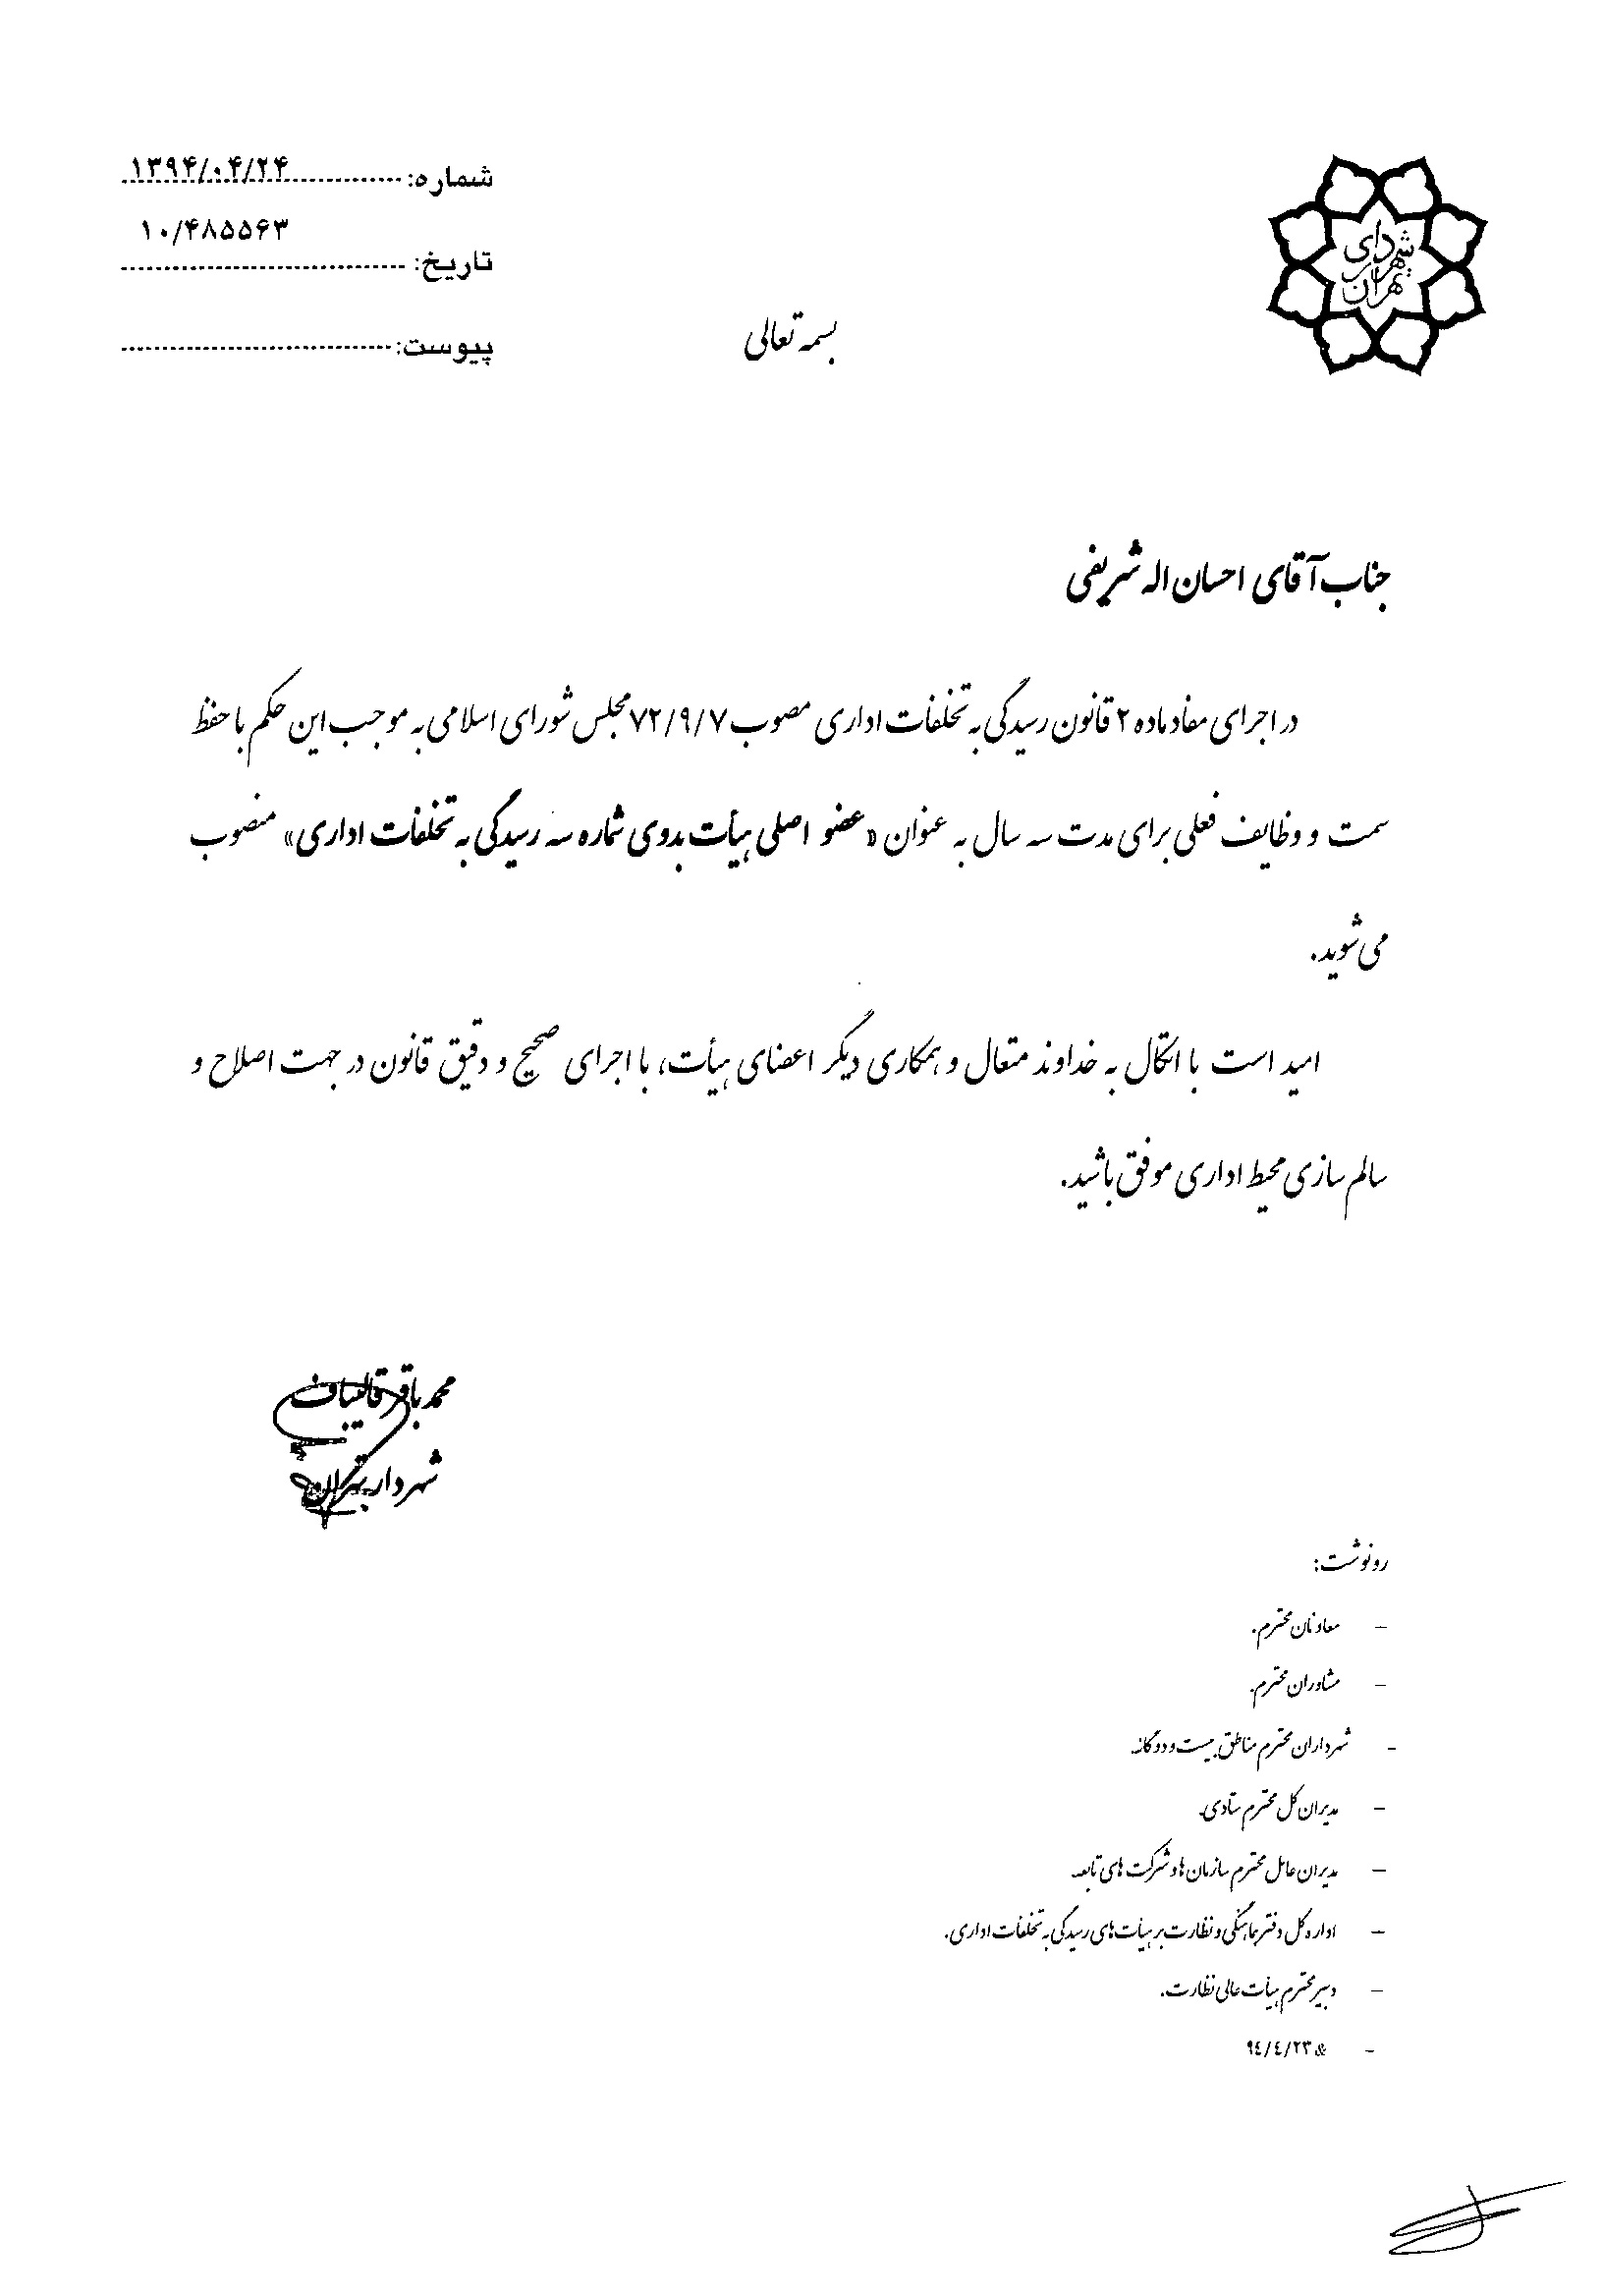 شهرداری
تهران
شماره: ۱۳۹۴/۰۴/۲۴
۱۰/۴۸۵۵۶۳
تاریخ:
پیوست:
بسمه تعالی
جناب آقای احسان اله شریفی
در اجرای مفاد ماده ۲ قانون رسیدگی به تخلفات اداری مصوب ۷۲/۹/۷ مجلس شورای اسلامی به موجب این حکم با حفظ
سمت و وظایف فعلی برای مدت سه سال به عنوان «عضو اصلی هیأت بدوی شماره سه رسیدگی به تخلفات اداری» منصوب
می شوید.
امید است با اتکال به خداوند متعال و همکاری دیگر اعضای هیأت، با اجرای صحیح و دقیق قانون در جهت اصلاح و
سالم سازی محیط اداری موفق باشید.
محمد باقر قالیباف
شهردار تهران
رونوشت:
- معاونان محترم.
- مشاوران محترم.
- شهرداران محترم مناطق بیست و دوگانه
- مدیران کل محترم ستادی.
- مدیران عامل محترم سازمان ها و شرکت های تابعه
- اداره کل دفتر هماهنگی و نظارت بر هیأت های رسیدگی به تخلفات اداری.
- دبیر محترم هیأت عالی نظارت.
- & ۹٤/٤/۲۳